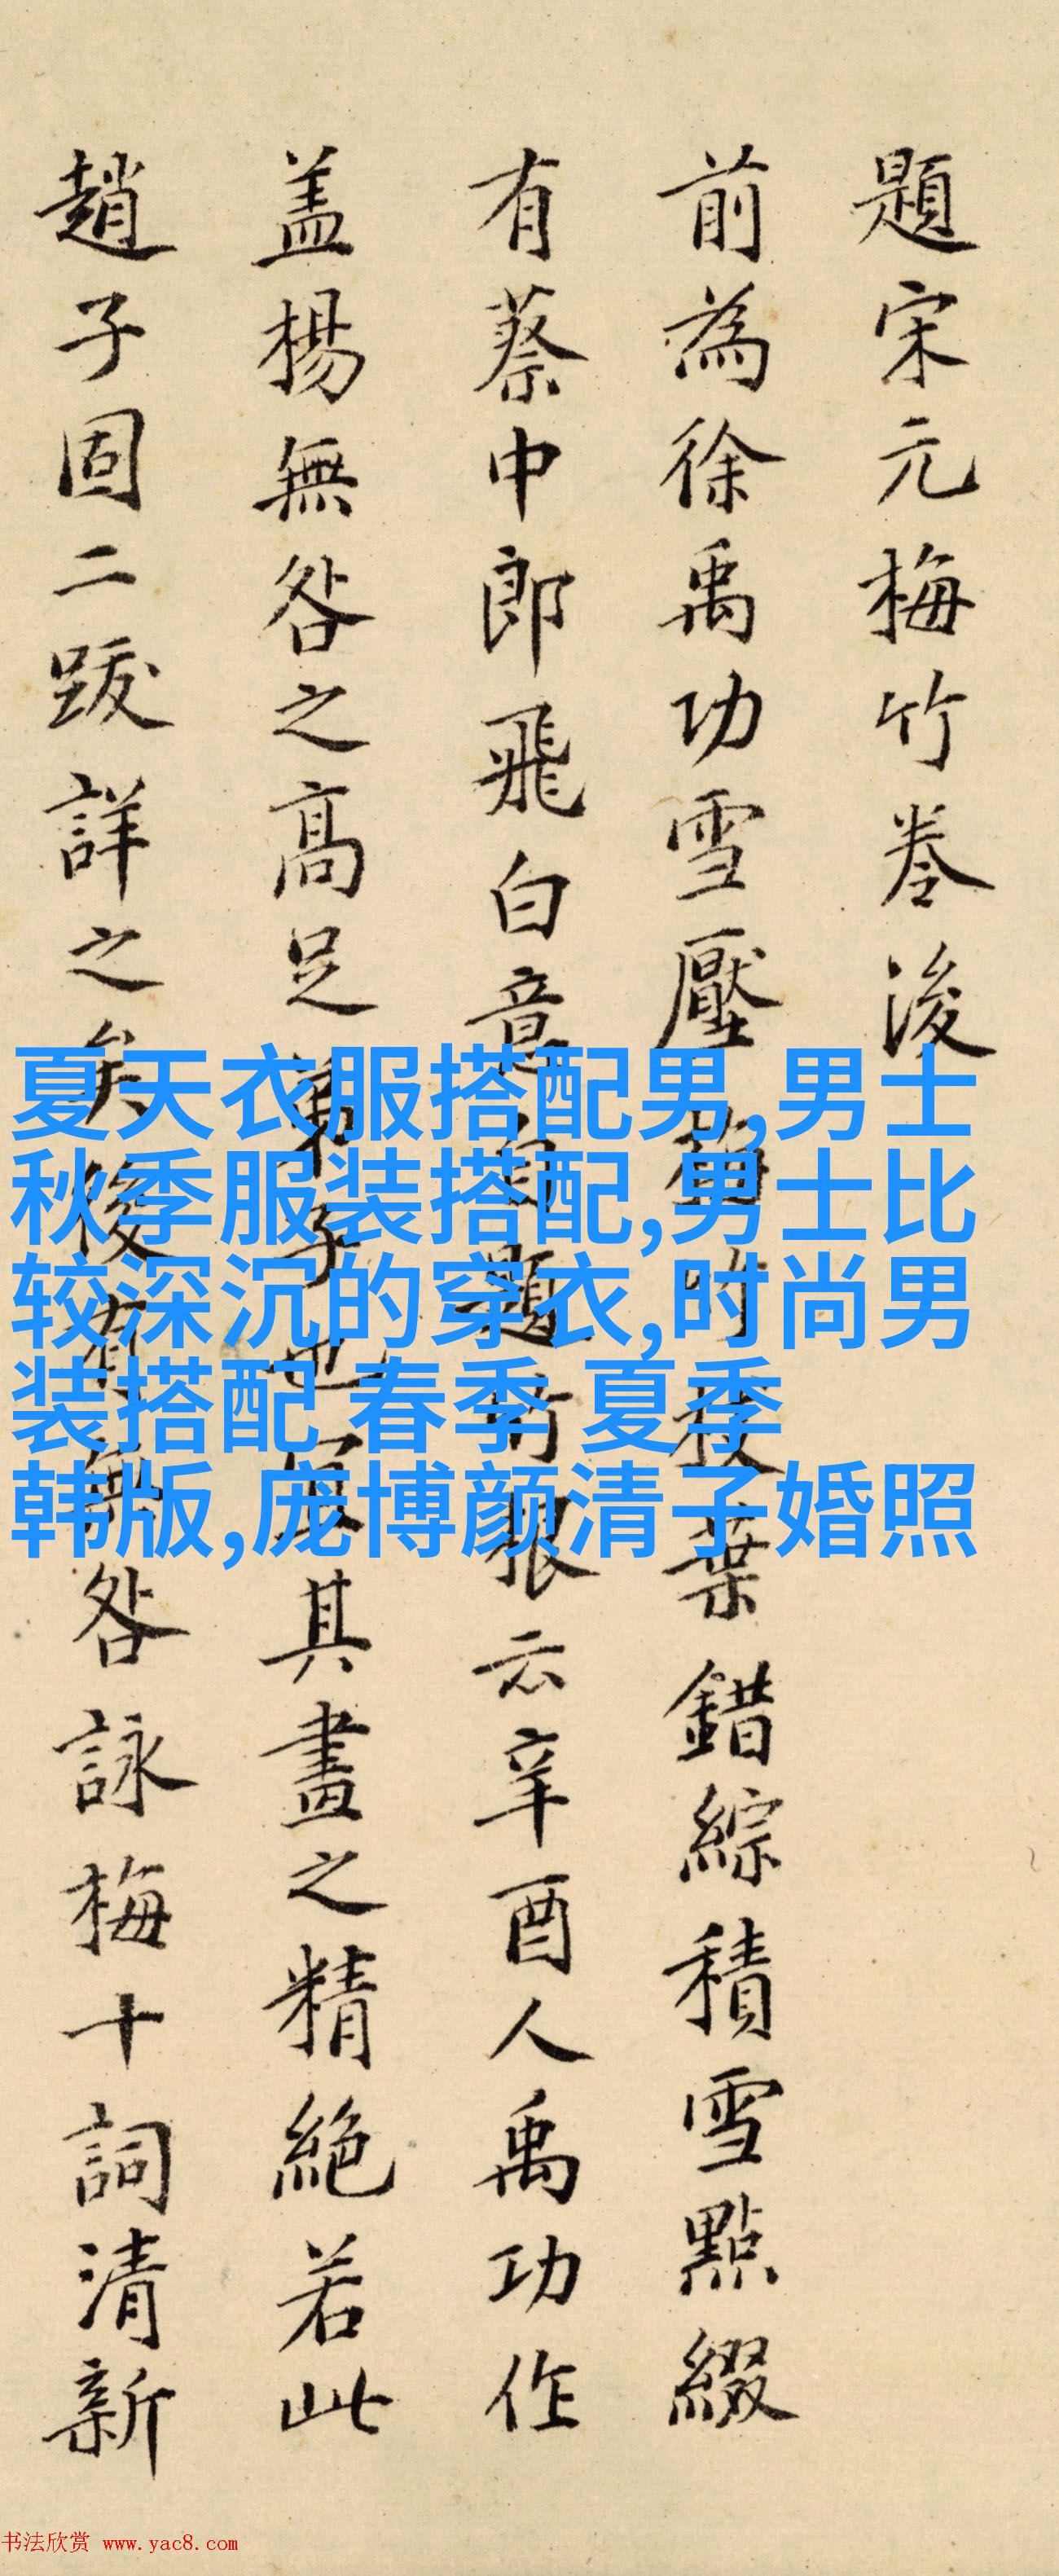 題宋元梅竹卷後
前為徐禹功雪壓梅竹枝葉錯綜積雪點綴
有蔡中郎飛白意自題行云辛酉人禹功作
盖楊無咎之高足弟子也宜其畫之精絕若此
趙子固二跋詳之矣後有無咎詠梅十詞清新
夏天衣服搭配男,男士
秋季服装搭配,男士比
较深沉的穿衣,时尚男
装搭配 春季 夏季
韩版,庞博颜清子婚照
书法欣赏 www.yac8.com